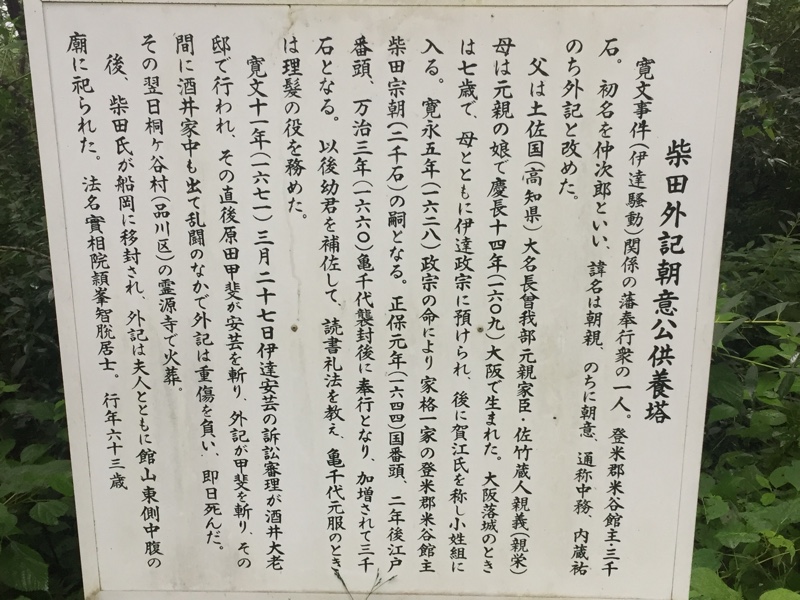 柴田外記朝意公供養塔
寛文事件(伊達騒動)関係の藩奉行衆の一人。登米郡米谷館主・三千
石。初名を仲次郎といい、諱名は朝親、のちに朝意、通称中務、内蔵祐
のち外記と改めた。
父は土佐国(高知県)大名長曽我部元親家臣・佐竹蔵人親義(親栄)
母は元親の娘で慶長十四年(一六〇九)大阪で生まれた。大阪落城のとき
は七歳で、母とともに伊達政宗に預けられ、後に賀江氏を称し小姓組に
入る。寛永五年(一六二八)政宗の命により家格一家の登米郡米谷館主
柴田宗朝(二千石)の嗣となる。正保元年(一六四四)国番頭、二年後江戸
番頭、万治三年(一六六〇)亀千代襲封後に奉行となり、加増されて三千
石となる。以後幼君を補佐して、読書礼法を教え、亀千代元服のとき
は理髪の役を務めた。
寛文十一年(一六七一)三月二十七日伊達安芸の訴訟審理が酒井大老
邸で行われ、その直後原田甲斐が安芸を斬り、外記が甲斐を斬り、その
間に酒井家中も出て乱闘のなかで外記は重傷を負い、即日死んだ。
その翌日桐ヶ谷村(品川区)の霊源寺で火葬。
後、柴田氏が船岡に移封され、外記は夫人とともに館山東側中腹の
廟に祀られた。法名實相院頴峯智脱居士。行年六十三歳